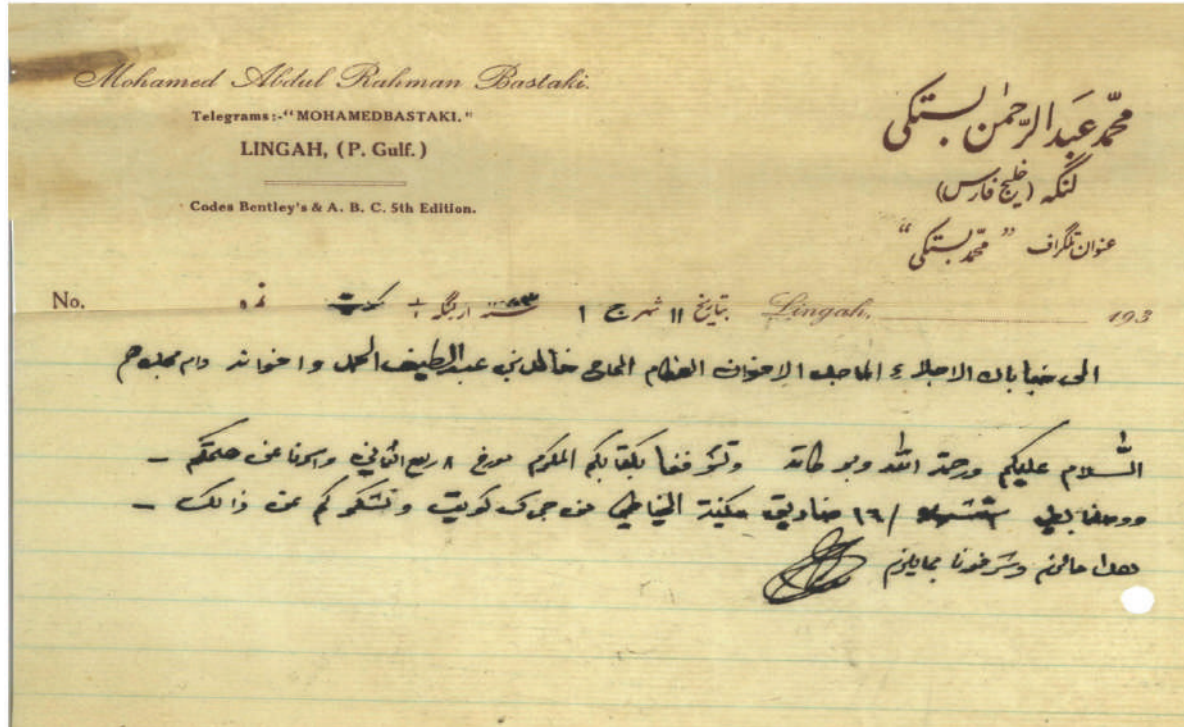 Mohamed Abdul Rahman Bastaki.
Telegrams:-"MOHAMEDBASTAKI."
LINGAH, (P. Gulf.)
Codes Bentley's & A. B. C. 5th Edition.
محمّد عَبدالرّحمٰن بستکی
لنگه (خلیج فارس)
عنوان تلگراف "محمّد بستکی"
No. نمره کویت بتاریخ ١١ شهر ج ١ Lingah. 193
الی الاجلاء الاماجد الاخوان العظام الحاجی عبد اللطیف الحمد و اخوانه دام
السّلام علیکم ورحمة الله وبرکاته وتشرفنا بکتابکم المکرم مورخ ٨ ربیع الثاني وسرنا عن صحتکم -
١٦/ صنادیق مکینة الخیاطي من جمرک کویت ونشکرکم عن ذالک -
وشرفونا بمایلزم